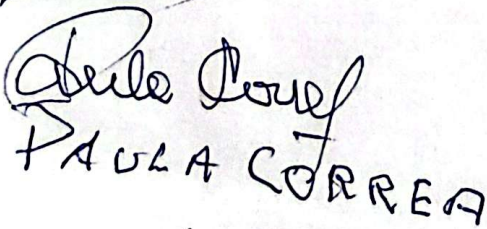 Paula Correa
PAULA CORREA